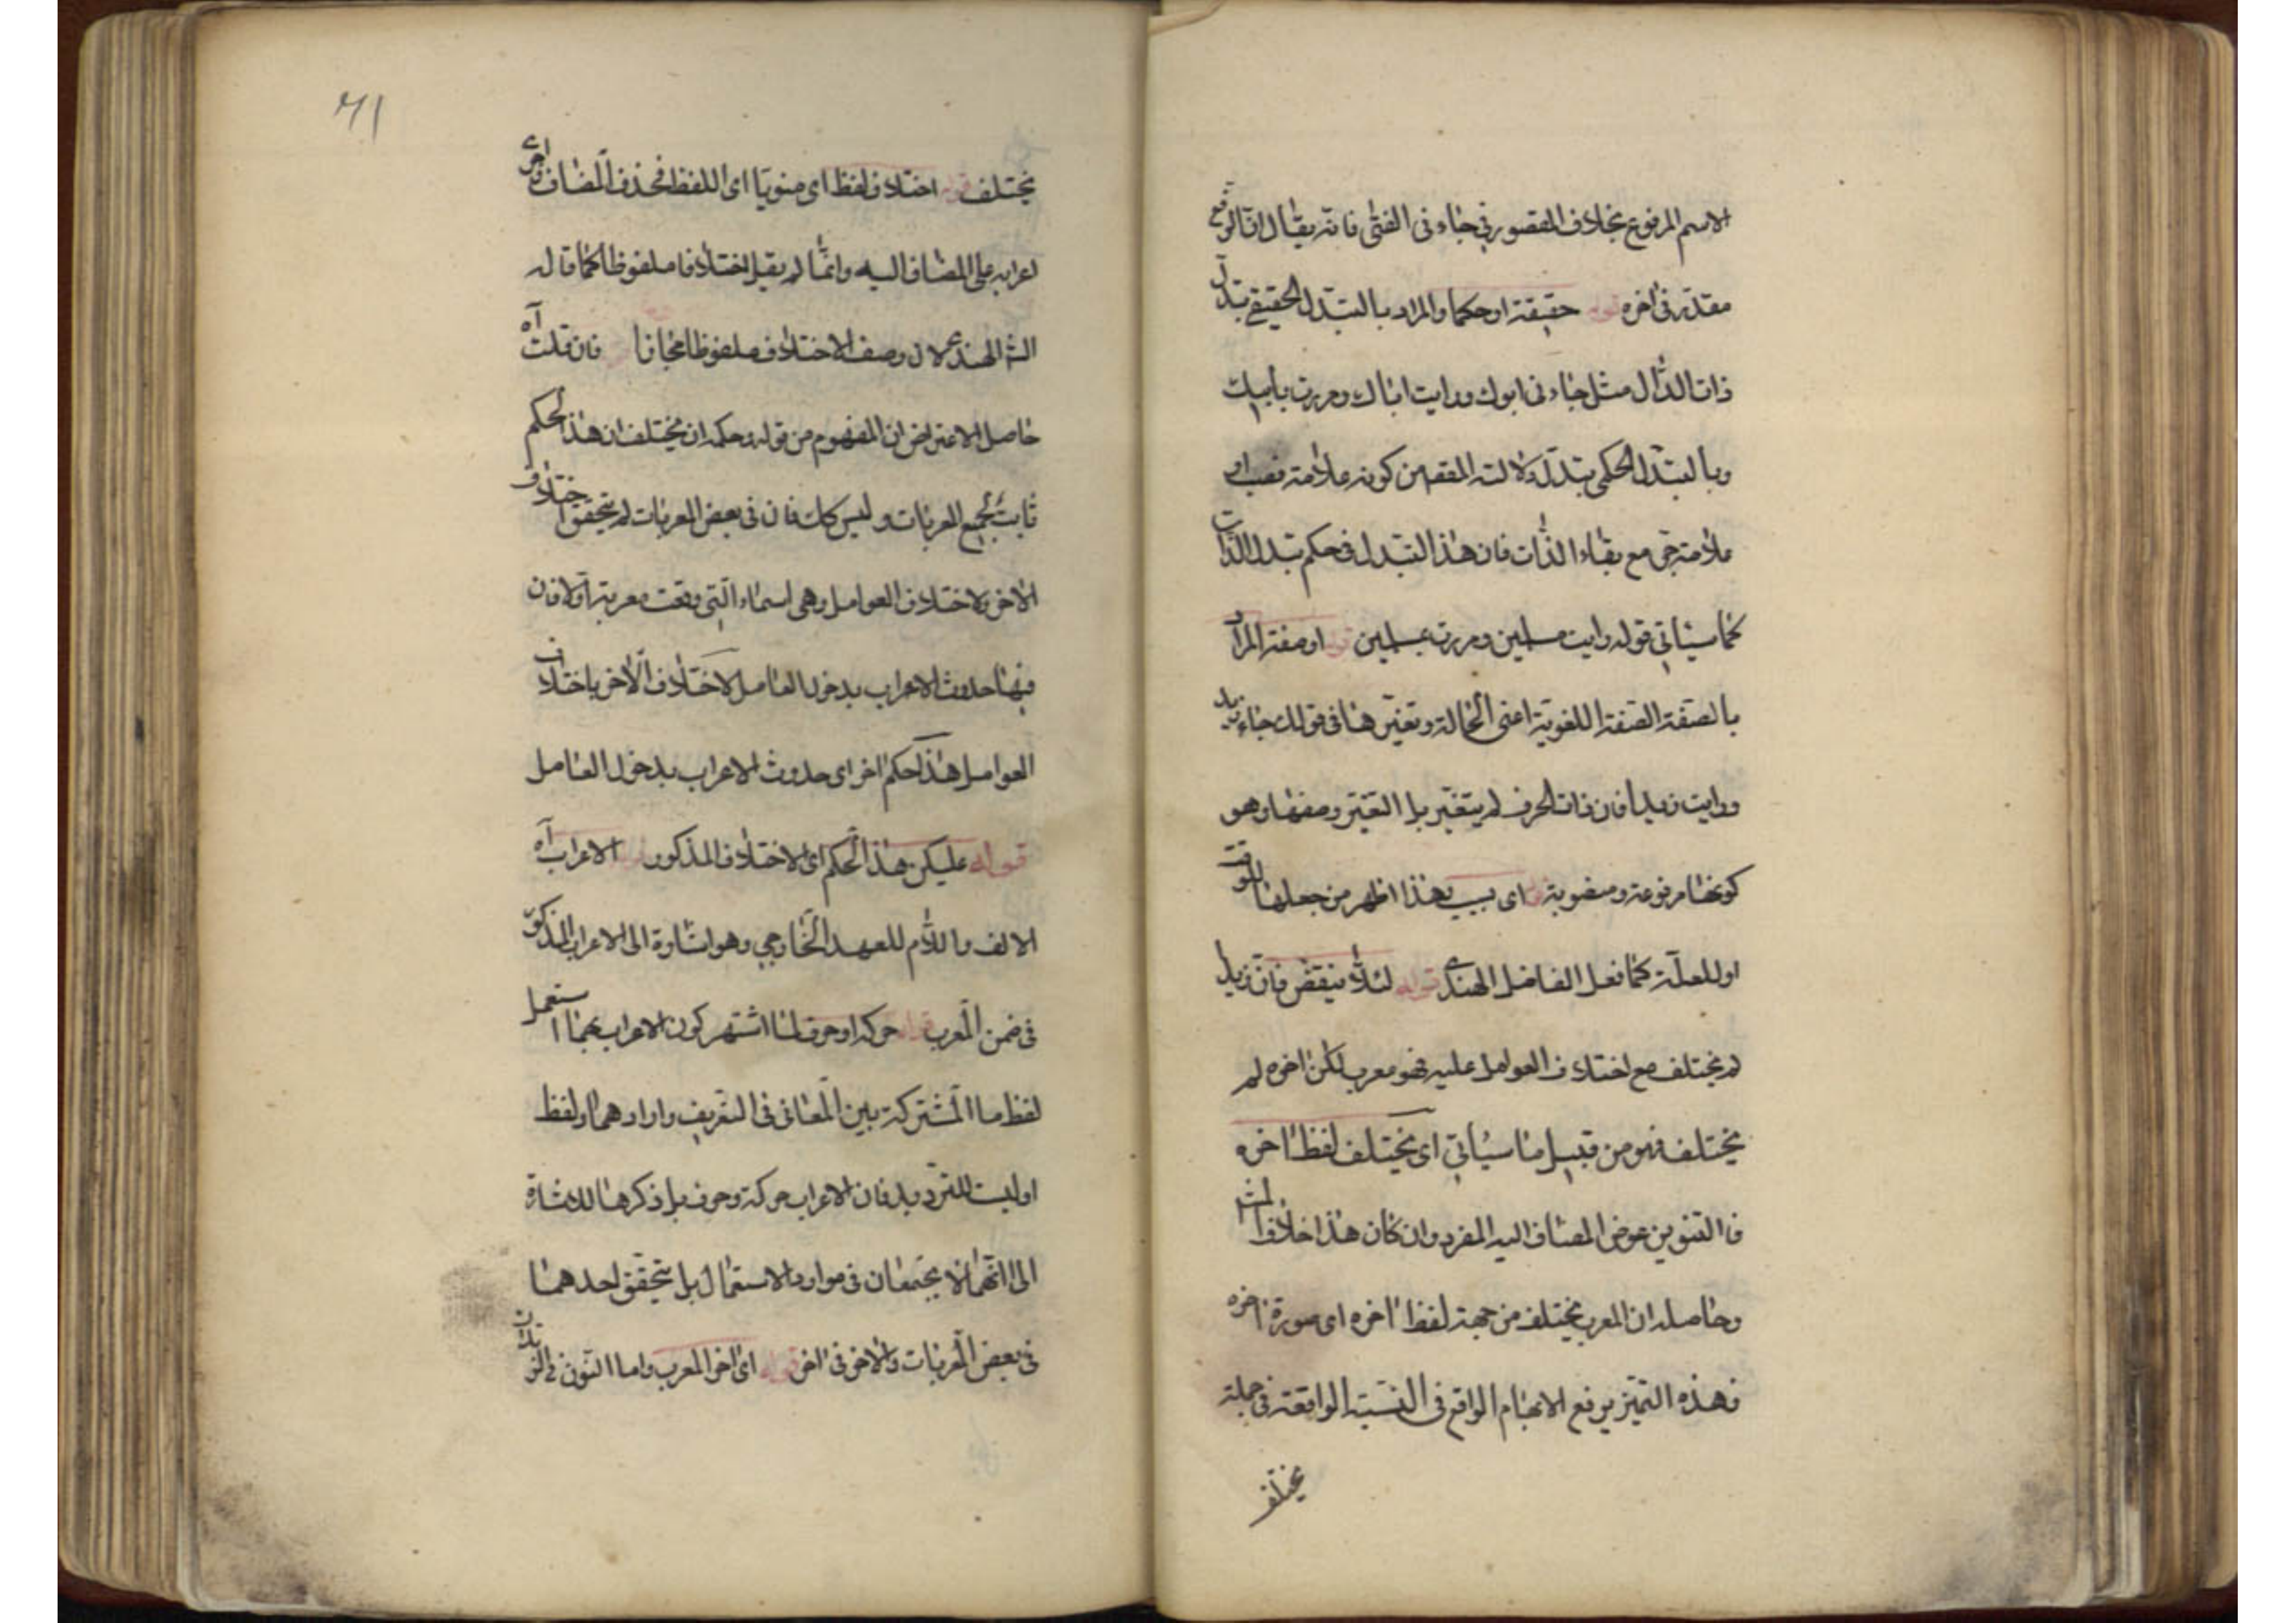 الاسم المرفوع بخلاف المقصور في جاءنی الفتی فانه یقال ان الرفع
مقدر فی اخره قوله حقیقة او حکما والمراد بالتبدل الحقیقی تبدل
ذات الدال مثل جاءنی ابوك ورایت اباك ومررت بابیك
وبالتبدل الحکمی تبدل دلالته المفهم من کونه علامة نصب او
علامة جر مع بقاء الذات فان هذا التبدل فی حکم تبدل الذات
کما سیاتی قوله رایت مسلمین ومررت بمسلمین قوله او صفة المراد
بالصفة الصفة اللغویة اعنی الحالة وتغیرها فی قولك جاء زید
ورایت زیدا فان ذات الحرف لم یتغیر بل التغیر وصفها وهو
کونها مرفوعة ومنصوبة قوله ای بسبب هذا اظهر من جعلها للوقت
او للعلة کما فعل الفاضل الهندی قوله لئلا ینتقض فان زیدا
لم یختلف مع اختلاف العوامل علیه فهو معرب لکن اخره لم
یختلف فهو من قبیل ما سیاتی ای یختلف لفظ اخره
فالتنوین عوض المضاف الیه المفرد وان کان هذا خلاف
وحاصله ان المعرب یختلف من جهة لفظ اخره ای صورة اخره
فهذه التمیز یرفع الابهام الواقع فی النسبة الواقعة فی جملة
یختلف
۷۱
یختلف قوله اختلاف لفظ ای منویا ای اللفظ فحذف المضاف
اعرابه علی المضاف الیه وانما لم یقل اختلافا ملفوظا کما قاله
الش الهندی لان وصف الاختلاف ملفوظا مجازا فان قلت آه
حاصل الاعتراض ان المفهوم من قوله وحکمه ان یختلف ان هذا الحکم
ثابت لجمیع المعربات ولیس کك فان فی بعض المعربات لم یتحقق اختلاف
الاخر ولا اختلاف العوامل وهی اسماء التی وقعت معربة اولا فان
فیها حدوث الاعراب بدخول العامل لا اختلاف الاخر باختلاف
العوامل هذا حکم اخر ای حدوث الاعراب بدخول العامل
قوله علیکن هذا الحکم ای الاختلاف المذکور قوله الاعراب آه
الالف واللام للعهد الخارجی وهو اشارة الی الاعراب المذکور
فی ضمن المعرب قوله حرکة او حرف لما اشتهر کون الاعراب بهما استعمل
لفظ ما المشترکة بین المعانی فی التعریف واراد هما ولفظ
او لیست للتردید فان الاعراب حرکة وحرف بل ذکرها للاشارة
الی انهما لا یجتمعان فی موارد الاستعمال بل یتحقق احدهما
فی بعض المعربات والاخر فی اخر قوله ای اخر المعرب واما النون فی